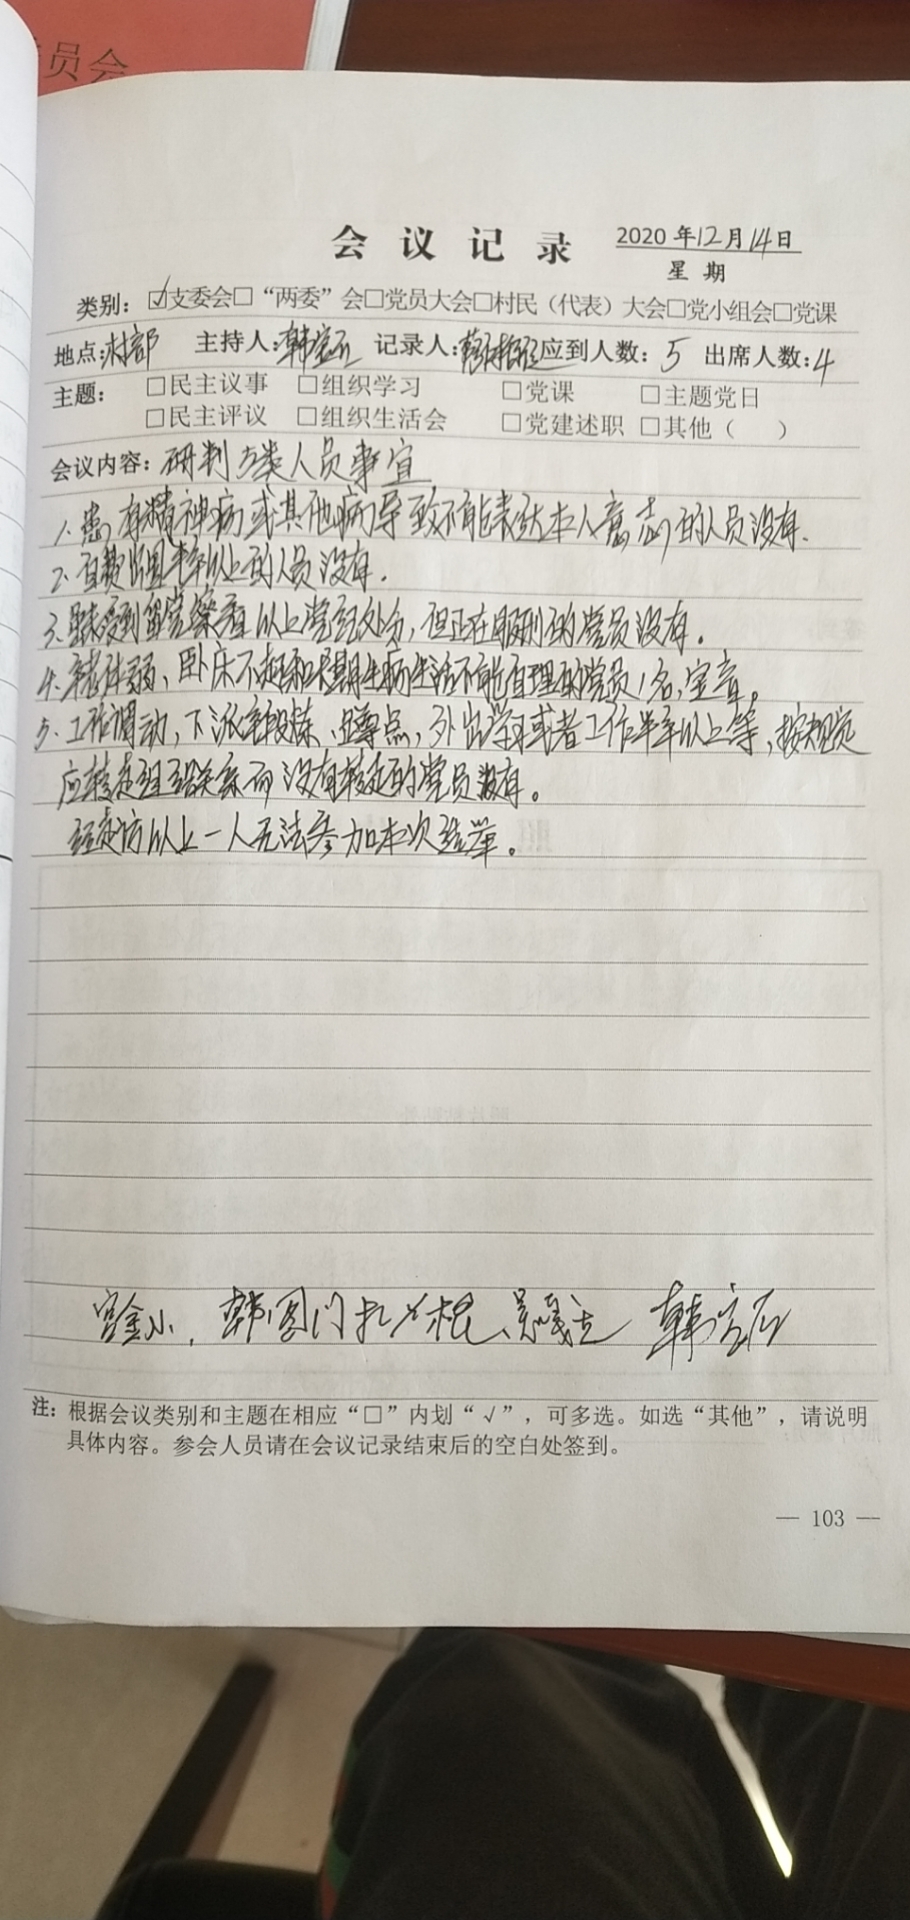 员会
会议记录
2020年12月14日
星期
类别：☑支委会□“两委”会□党员大会□村民（代表）大会□党小组会□党课
地点：村部 主持人：韩 记录人： 应到人数：5 出席人数：4
主题：□民主议事 □组织学习 □党课 □主题党日
□民主评议 □组织生活会 □党建述职 □其他（ ）
会议内容：研判5类人员事宜
1.患有精神病或其他病导致不能表达本人意志的人员没有.
2.自费出国半年以上的人员没有.
3.虽未受到留党察看以上党纪处分，但正在服刑的党员没有。
4.年老体弱、卧床不起和长期生病生活不能自理的党员1名，宝音。
5.工作调动，下派锻炼、蹲点，外出学习或者工作半年以上等，按规定
应转走组织关系而没有转走的党员没有。
经走访以上一人无法参加本次选举。
宫金小，韩图门 扎 根、
注：根据会议类别和主题在相应“□”内划“√”，可多选。如选“其他”，请说明
具体内容。参会人员请在会议记录结束后的空白处签到。
— 103 —